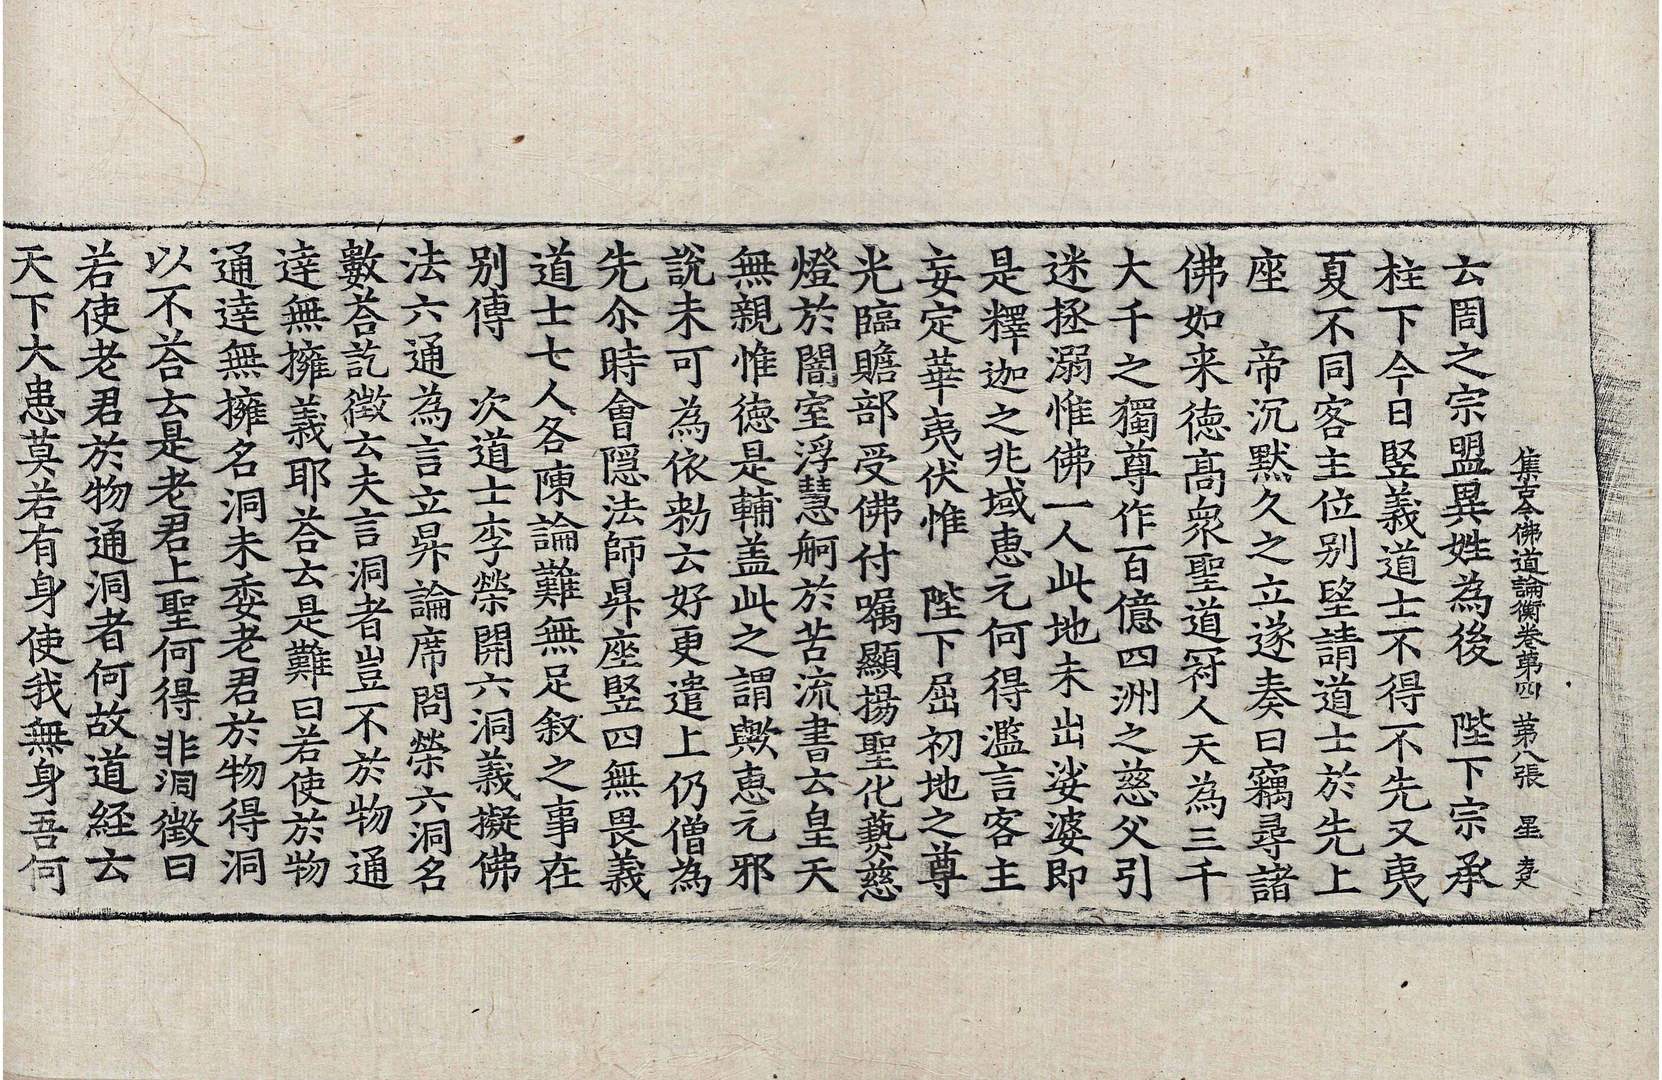 集古今佛道論衡卷第四 第八張 星
云周之宗盟異姓為後 陛下宗承
柱下今日竪義道士不得不先又夷
夏不同客主位别望請道士於先上
座 帝沉默久之立遂奏曰竊尋諸
佛如来德髙衆聖道冠人天為三千
大千之獨尊作百億四洲之慈父引
迷拯溺惟佛一人此地未出娑婆即
是釋迦之兆域惠元何得濫言客主
妄定華夷伏惟 陛下屈初地之尊
光臨贍部受佛付嘱顯揚聖化爇慈
燈於闇室浮慧舸於苦流書云皇天
無親惟德是輔盖此之謂歟惠元邪
說未可為依勑云好更遣上仍僧為
先尒時會隱法師昇座竪四無畏義
道士七人各陳論難無足叙之事在
别傳 次道士李榮開六洞義擬佛
法六通為言立昇論席問榮六洞名
數荅訖徵云夫言洞者豈不於物通
達無擁義耶荅云是難曰若使於物
通達無擁名洞未委老君於物得洞
以不荅云是老君上聖何得非洞徵曰
若使老君於物通洞者何故道経云
天下大患莫若有身使我無身吾何